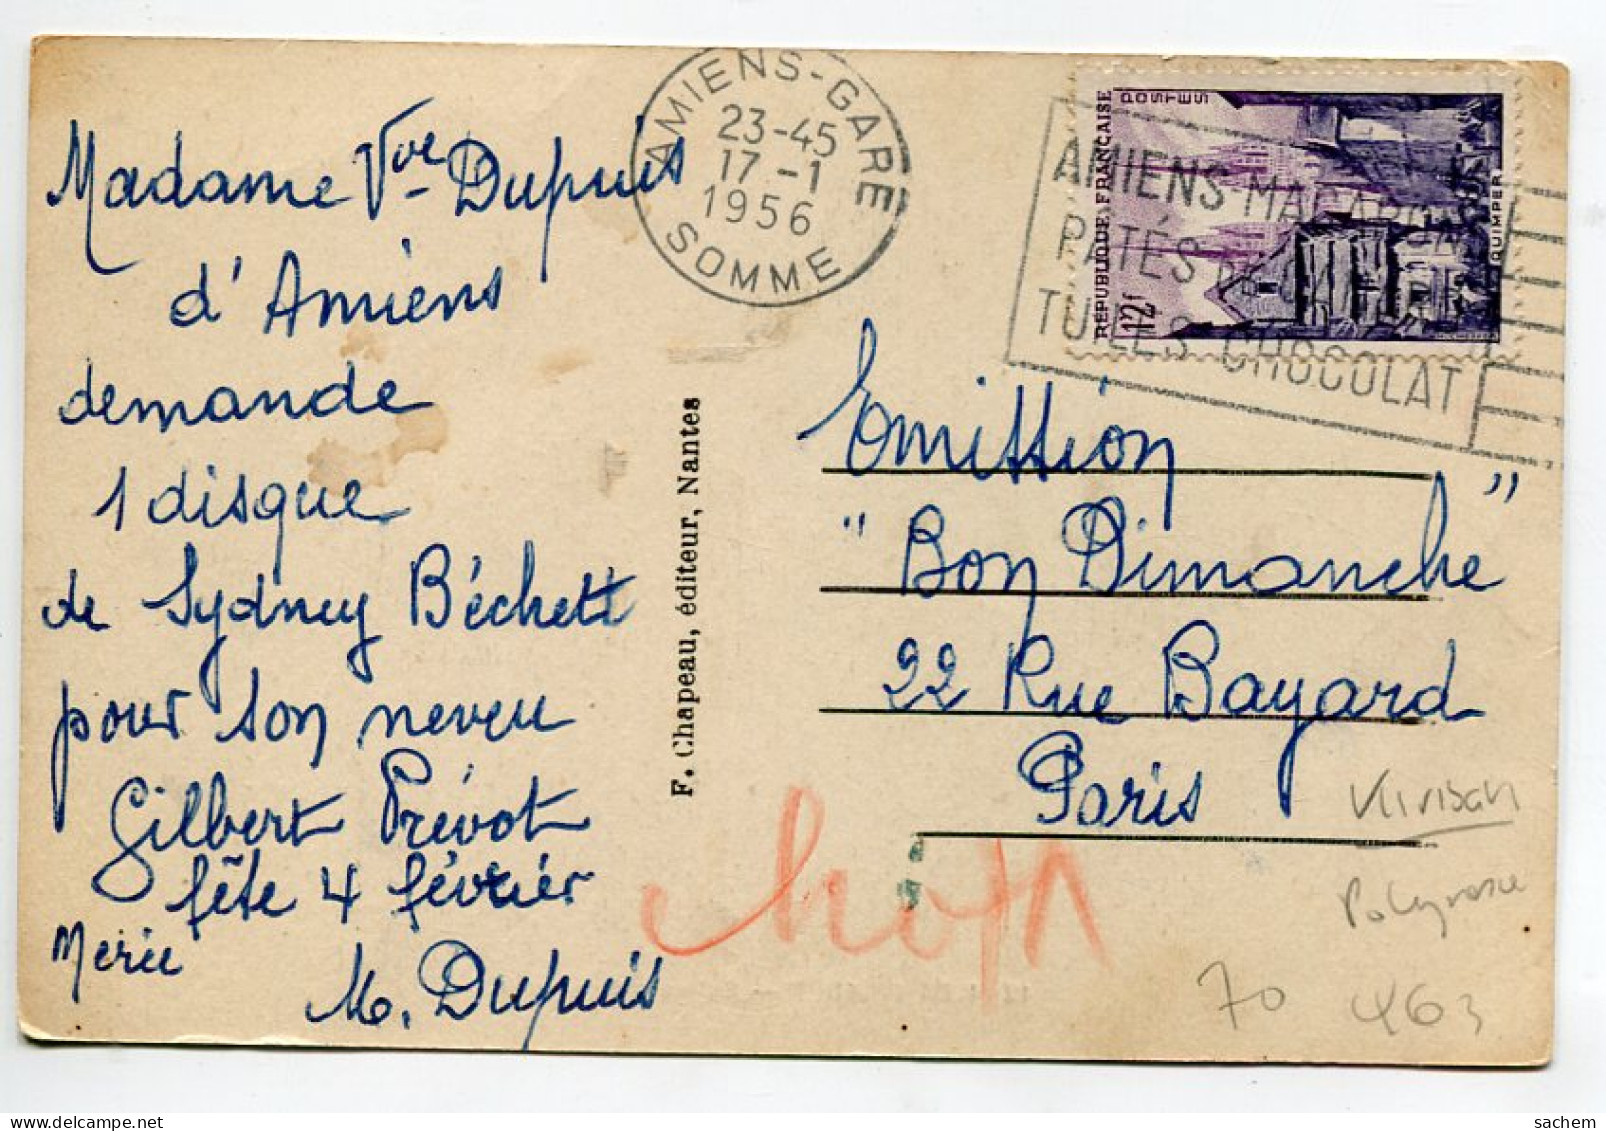 Madame Vve Dupuis
d'Amiens
demande
1 disque
de Sydney Béchett
pour son neveu
Gilbert Prévot
fête 4 février
Merii
M. Dupuis
F. Chapeau, éditeur, Nantes
AMIENS-GARE
23-45
17 -1
1956
SOMME
RÉPUBLIQUE FRANÇAISE
POSTES
12F
QUIMPER
AMIENS-MACARONS
PATÉS DE CANARD
TUILES CHOCOLAT
Emission
"Bon Dimanche"
22 Rue Bayard
Paris
70
463
sachem